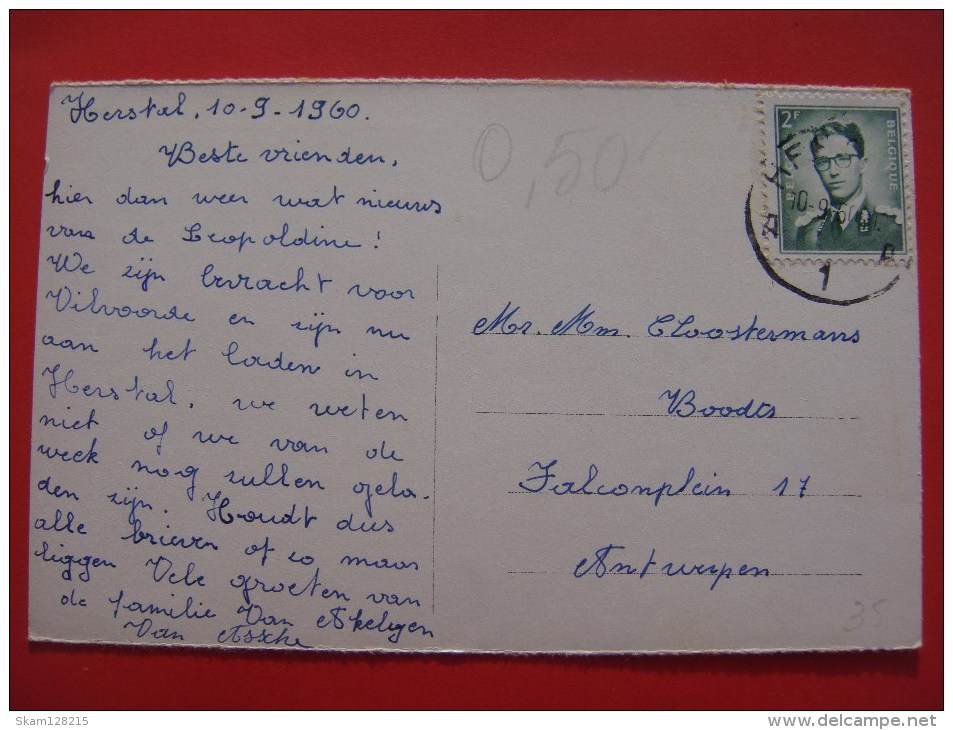 Herstal, 10-9-1960.
Beste vrienden,
hier dan weer wat nieuws
van de Leopoldine!
We zijn bevracht voor
Vilvoorde en zijn nu
aan het laden in
Herstal. we weten
niet of we van de
week nog zullen gela-
den zijn. Houdt dus
alle brieven of zo maar
liggen Vele groeten van
de familie Van
Van Assche
0,50
2F
BELGIQUE
10-9-60
1
Mr. Mm. Cloostermans
Boodts
Falconplein 17
Antwerpen
35
Skam128215
www.delcampe.net